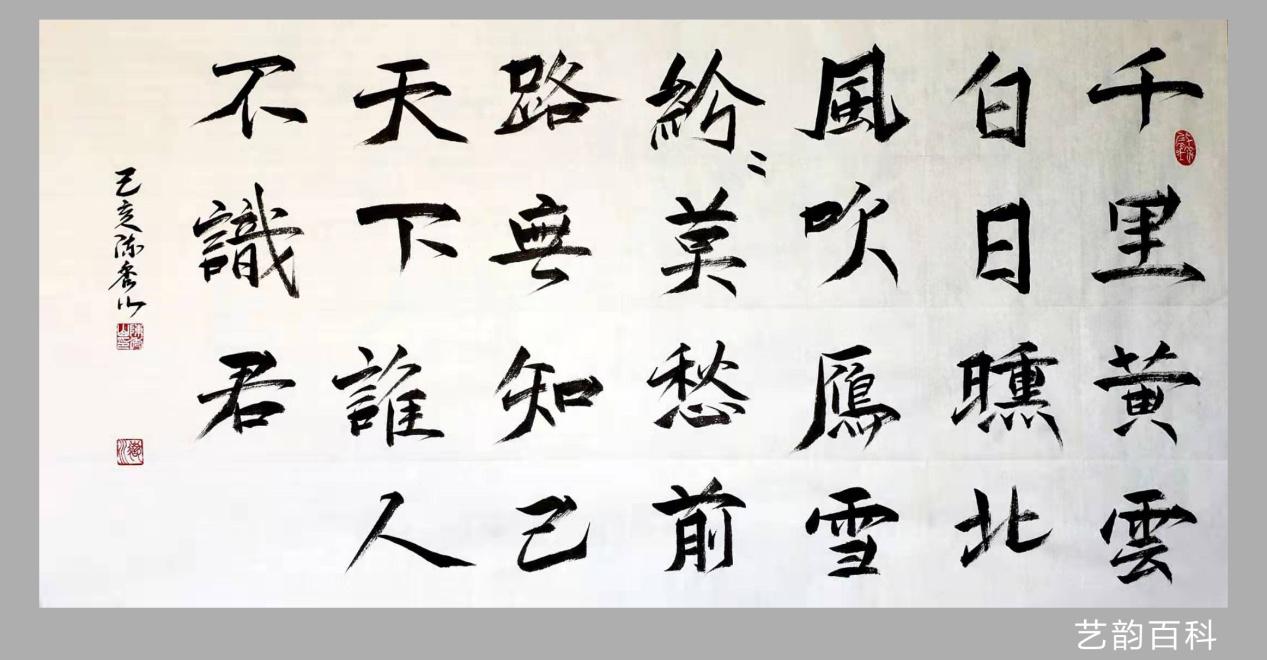 千里黄雲
白日曛北
風吹鴈雪
紛〻莫愁前
路無知己
天下誰人
不識君
己亥陈香山
艺韵百科